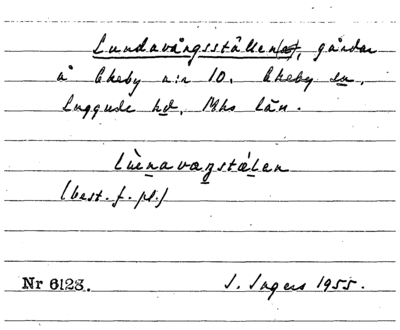 Lundavångsställen(a), gårdar
å Ekeby n:r 10. Ekeby sn.
Luggude hd, Mhs län.
lùenavaŋstɛ́len
(best. f. pl.)
Nr 6128. I. Ingers 1955.